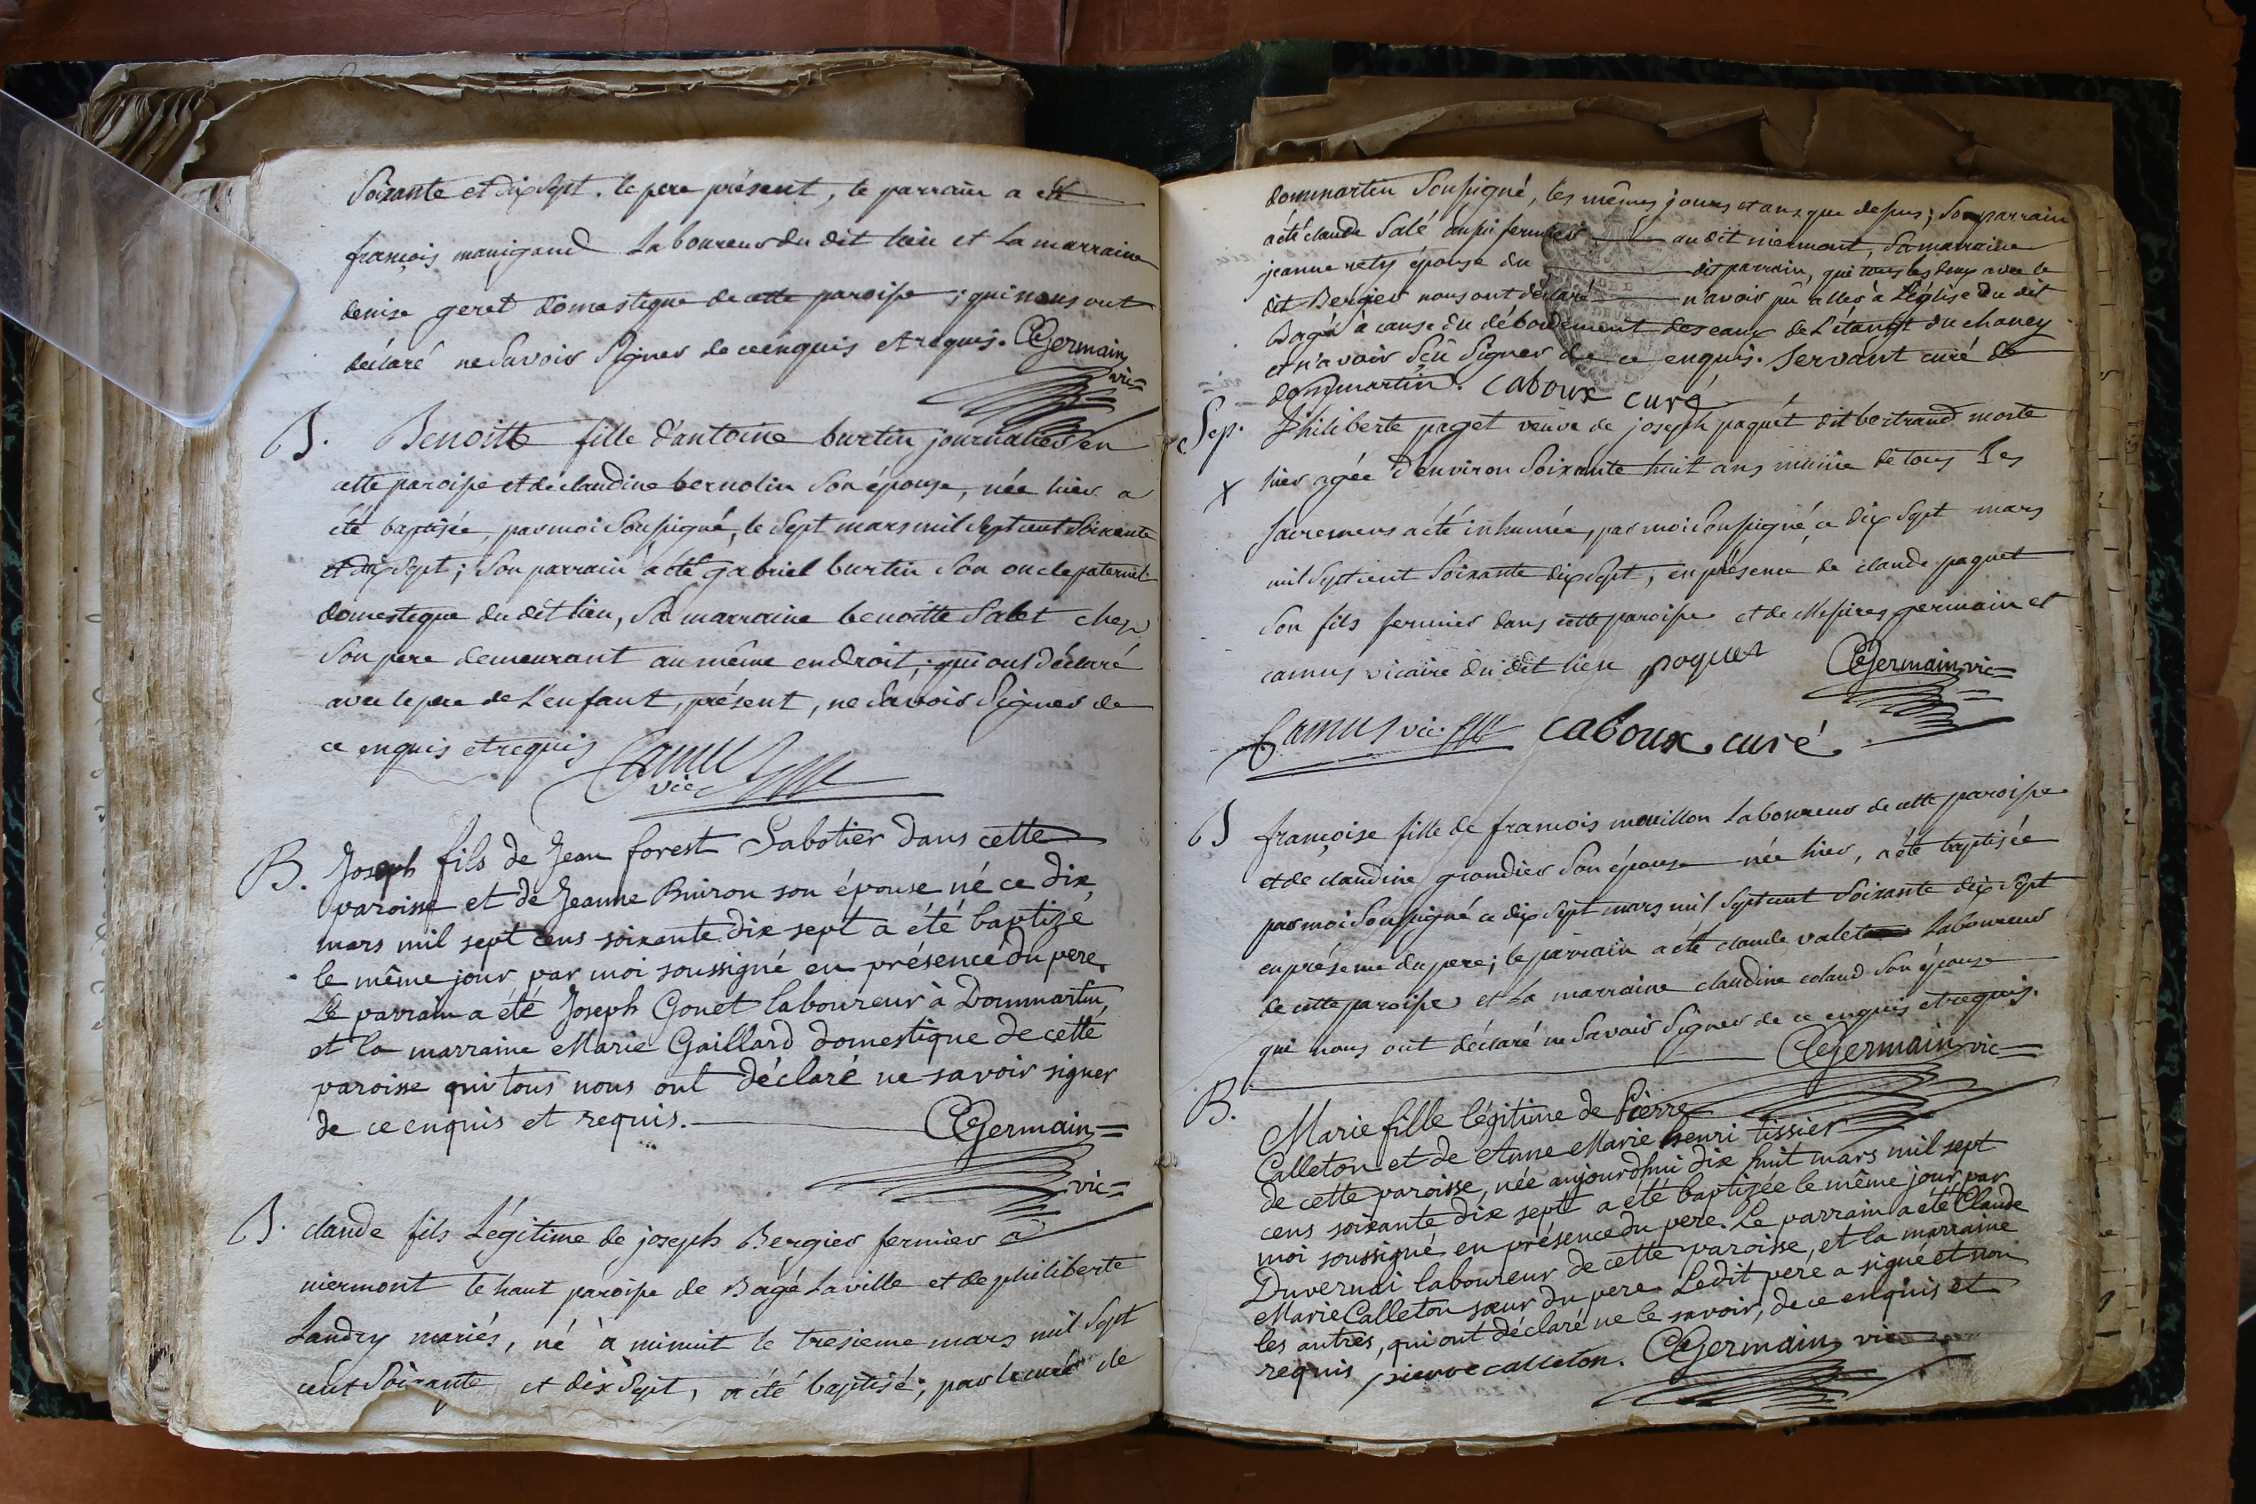 Soixante et dix Sept. le pere présent, le parrain a été
françois manigand Laboureur du dit lieu et La marraine
denise geret domestique de cette paroisse ; qui nous ont
déclaré ne Savoir Signer de ce enquis et requis. Germain
vic=
B. Benoitte fille d'antoine burtin journalier en
cette paroisse et de claudine bernolin Son épouse, née hier a
été baptisée, par moi Soussigné, le Sept mars mil Sept cent Soixante
et dix Sept ; Son parrain a été gabriel burtin Son oncle paternel
domestique du dit lieu, Sa marraine benoitte Salet chez
Son pere demeurant au même endroit, qui ont déclaré
avec le pere de L'enfant, présent, ne Savoir Signer de
ce enquis et requis Camus
vic
B. Joseph fils de Jean forest Sabotier dans cette
paroisse et de Jeanne Buiron son épouse né ce dix
mars mil sept cens soixante dix sept a été baptizé
le même jour par moi soussigné en présence du pere.
Le parrain a été Joseph Gonet laboureur à Dommartin,
et la marraine Marie Gaillard domestique de cette
paroisse qui tous nous ont déclaré ne savoir signer
de ce enquis et requis. Germain=
vic=
B. claude fils Légitime de joseph Bergier fermier à
niermont le haut paroisse de Bagé Laville et de philiberte
Landry mariés, né à minuit le tresieme mars mil Sept
cent Soixante et dix Sept, a été baptisé ; par le curé de
dommartin Soussigné, les mêmes jours et ans que dessus ; Son parrain
a été claude Salé aussi fermier au dit niermont, Sa marraine
jeanne rety épouse du dit parrain, qui tous les deux avec le
dit Bergier nous ont déclaré n'avoir pû aller à L'église du dit
Bagé à cause du débordement des eaux de L'étangt du chaney
et n'avoir Sçû Signer de ce enquis. Servant curé de
dommartin. caboux curé
Sep. Philiberte paget veuve de joseph paquet dit bertrand morte
hier agée d'environ Soixante huit ans munie de tous Ses
Sacremens a été inhumée, par moi Soussigné ce dix Sept mars
mil Sept cent Soixante dix Sept ; en présence de claude paquet
Son fils fermier dans cette paroisse et de Messires germain et
camus vicaire du dit lieu poquet Germain vic=
Camus vic caboux curé
B françoise fille de françois mouillon Laboureur de cette paroisse
et de claudine grandier Son épouse née hier, a été baptisée
par moi Soussigné ce dix Sept mars mil Sept cent Soixante dix Sept
en présence du pere ; le parrain a été claude valet Laboureur
de cette paroisse et La marraine claudine coland Son épouse
qui nous ont déclaré ne Savoir Signer de ce enquis et requis.
Germain vic=
B. Marie fille légitime de Pierre
Calleton et de Anne Marie henri tissier
de cette paroisse, née aujourdhui dix huit mars mil sept
cens soixante dix sept a été baptizée le même jour par
moi soussigné en présence du pere. Le parrain a été Claude
Duvernai laboureur de cette paroisse, et la marraine
Marie Calleton sœur du pere. Ledit pere a signé et non
les autres, qui ont déclaré ne le savoir, de ce enquis et
requis pierre calleton. Germain vic